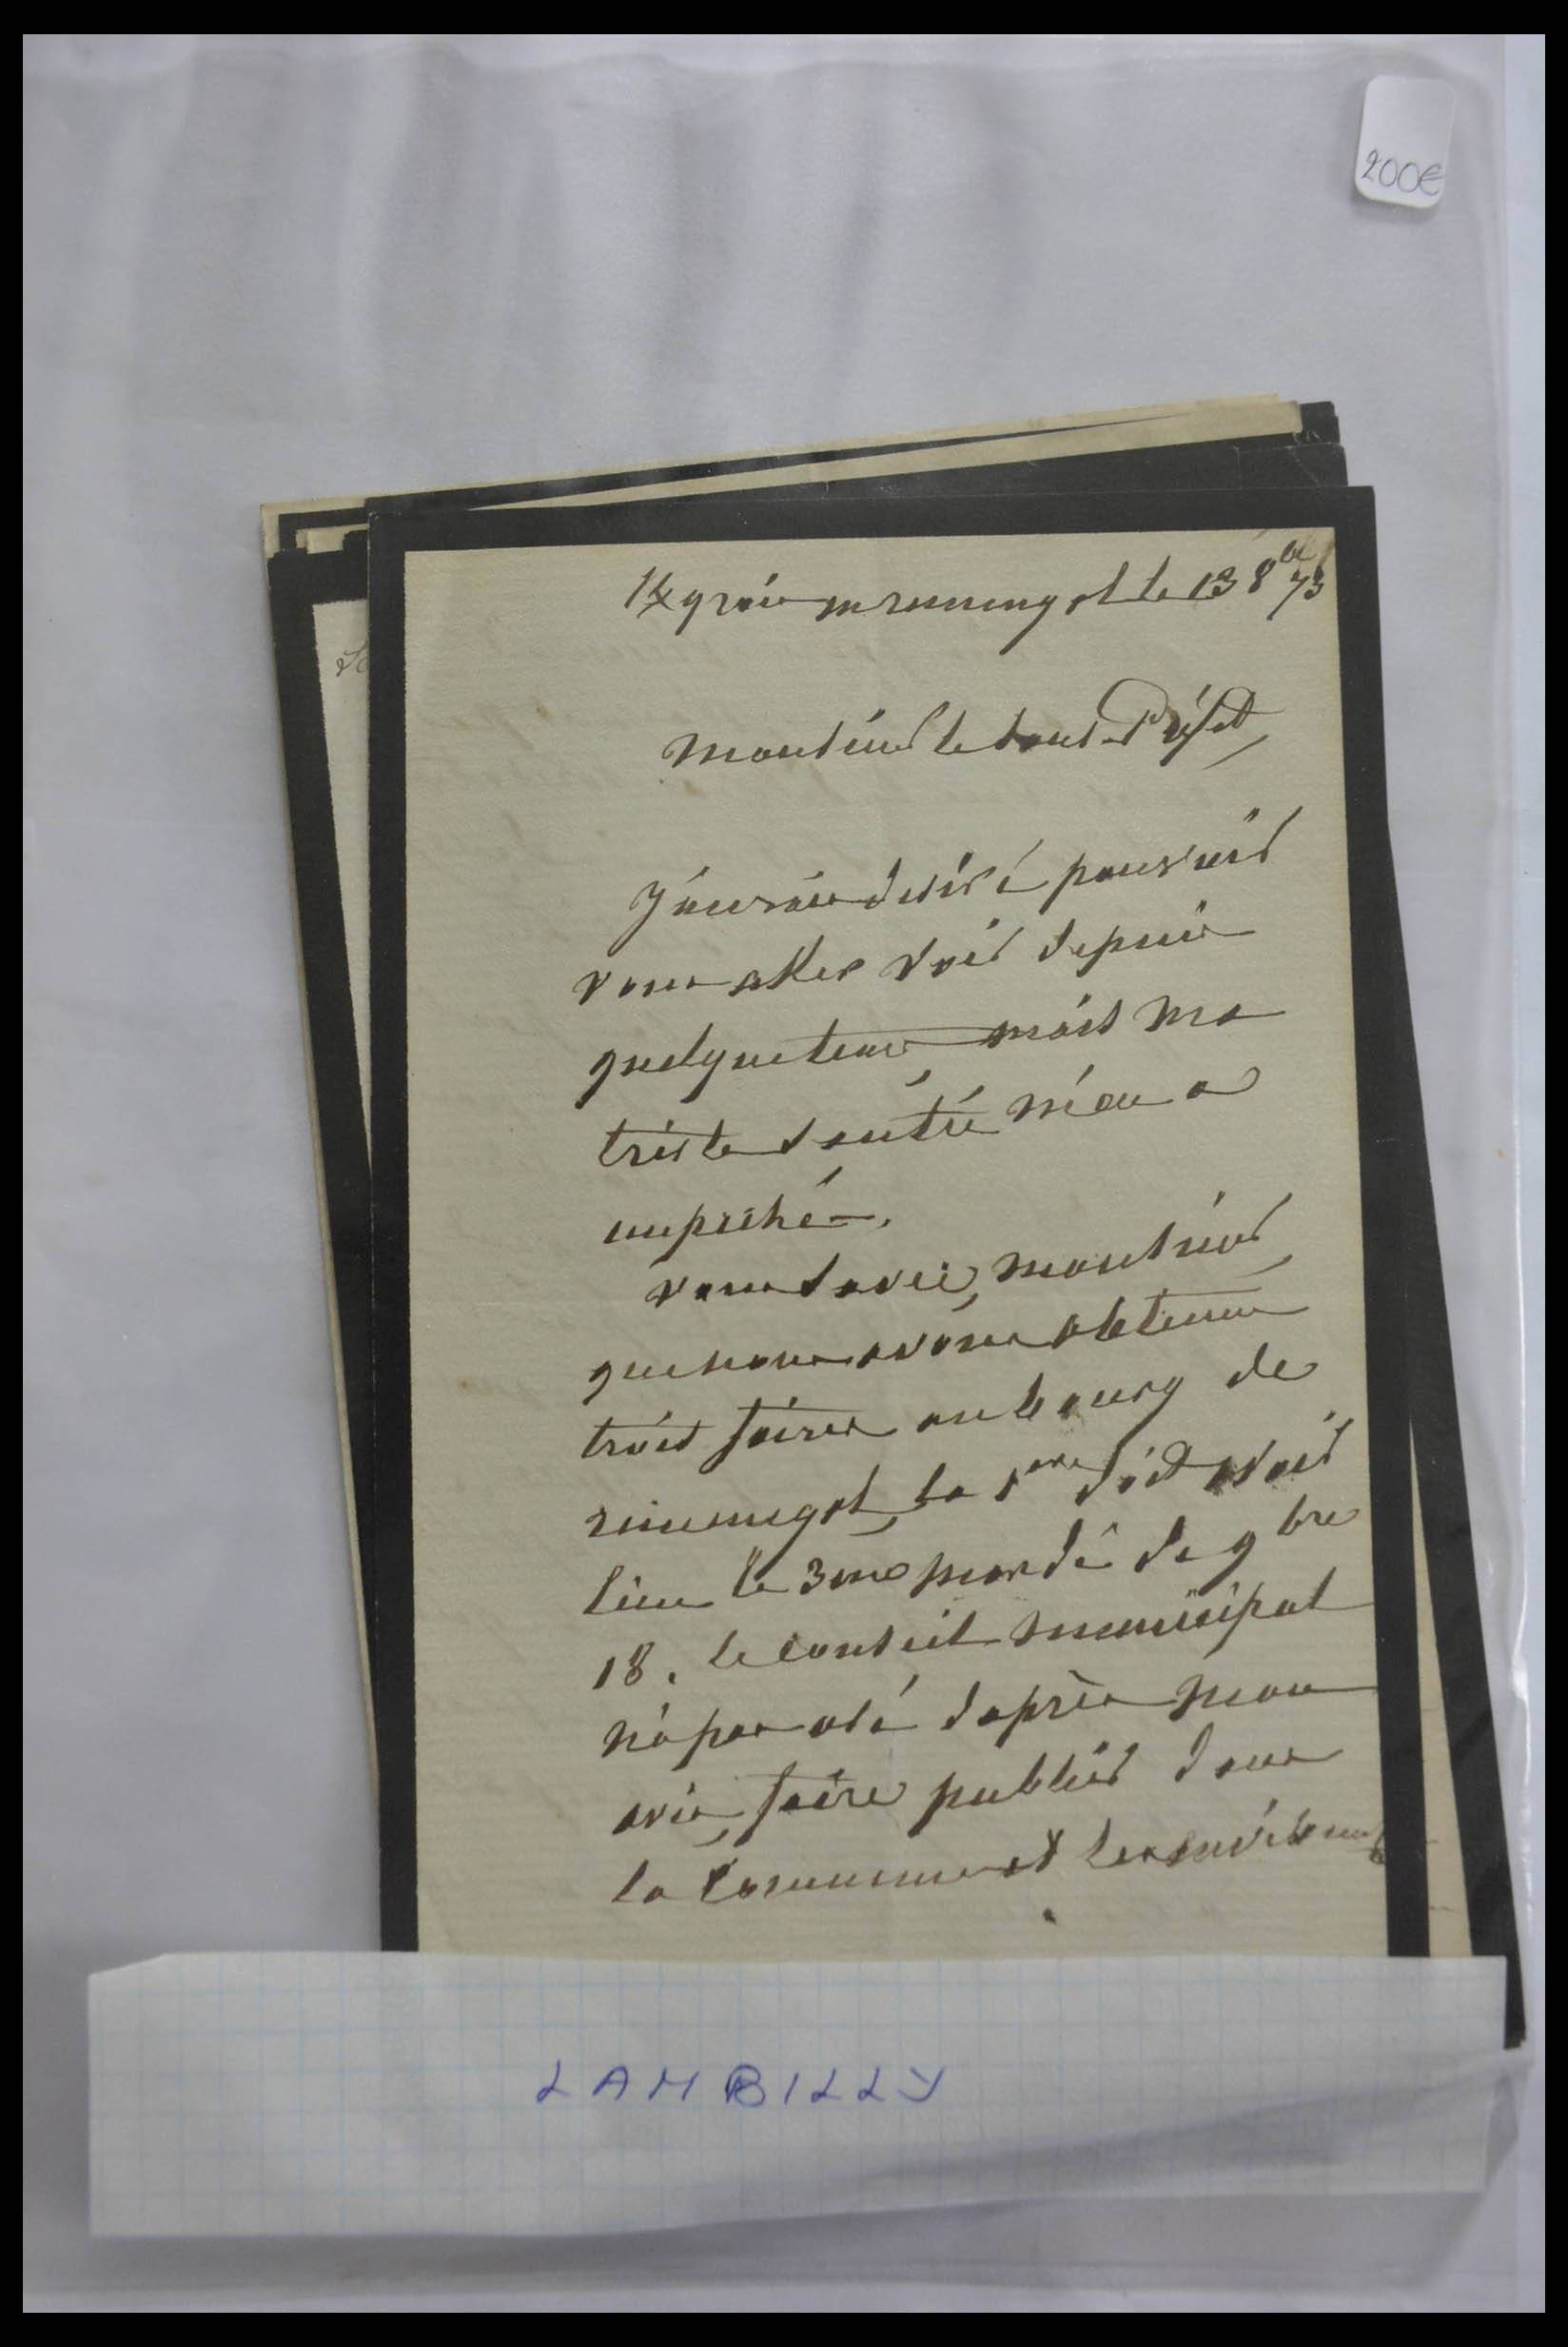 200€
le 13 8bre 73
Monsieur le sous-Préfet,
J'aurais désiré pouvoir
vous aller voir depuis
quelque tems, mais ma
triste santé m'en a
empeché.
vous savez, monsieur,
que nous avons obtenu
trois foires au bourg de
remungol, la 1ere doit avoir
lieu le 3me mardi de 9bre
18. le conseil municipal
n'a pas osé d'après mon
avis, faire publier dans
la commune et les environs
LAMBILLY